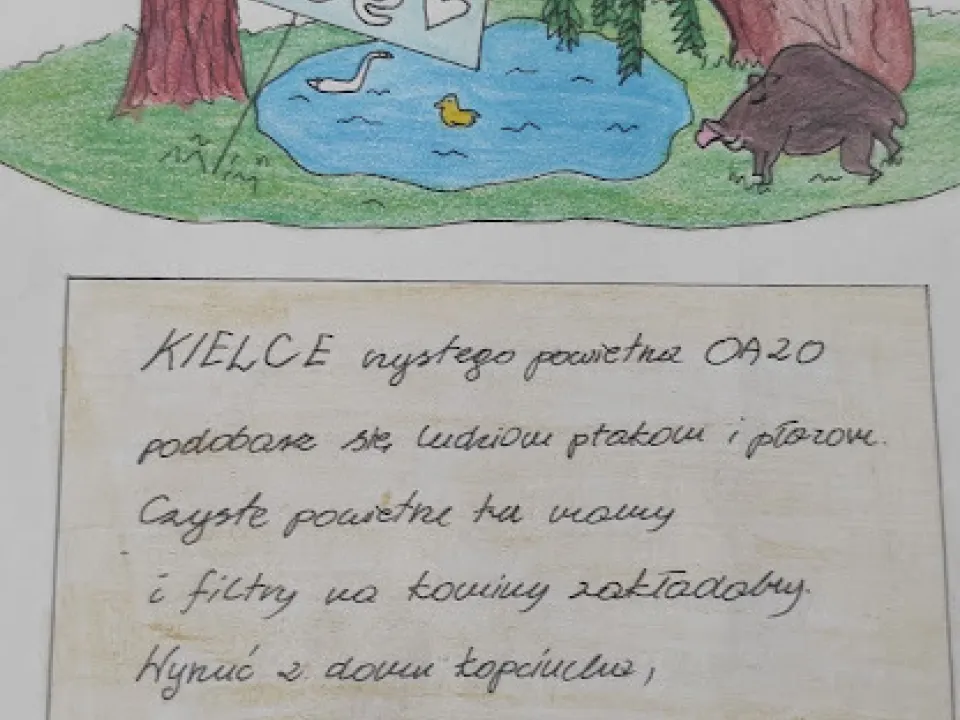 KIELCE czystego powietrza OAZO
podobasz się ludziom ptakom i płazom.
Czyste powietrze tu mamy
i filtry na kominy zakładamy.
Wyrzuć z domu kopciucha,